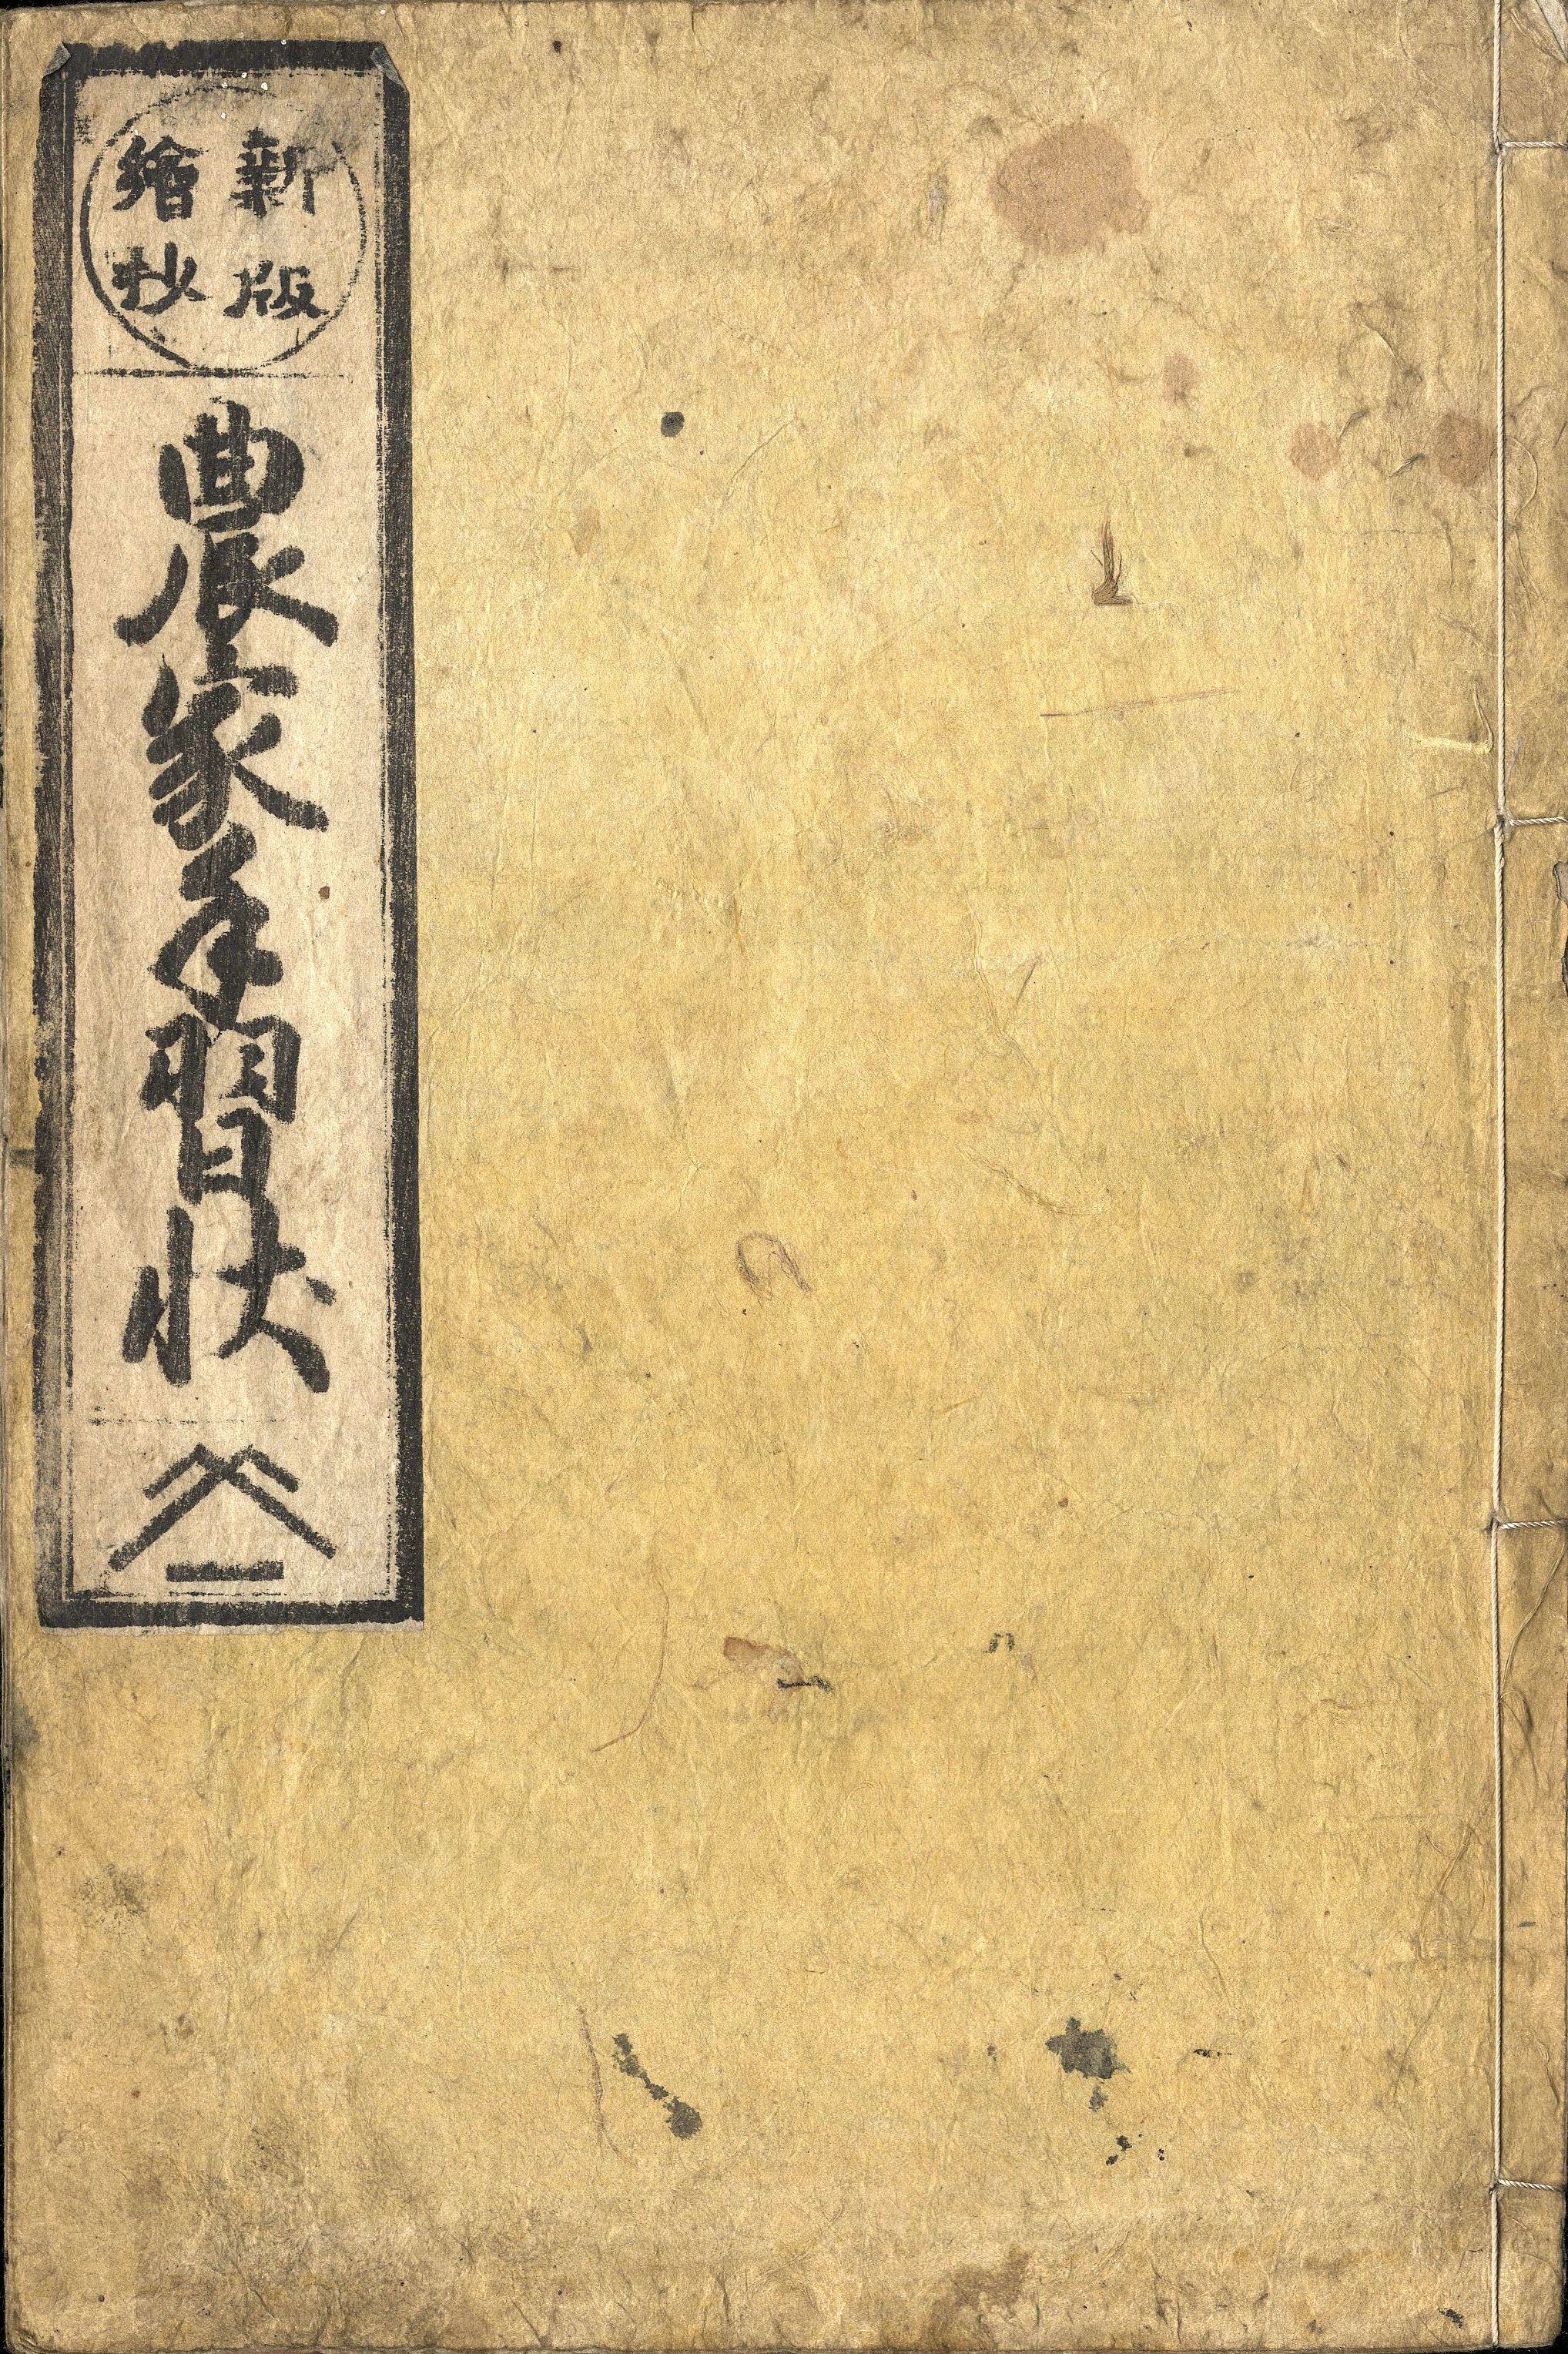 新版
繪抄
農家手習状